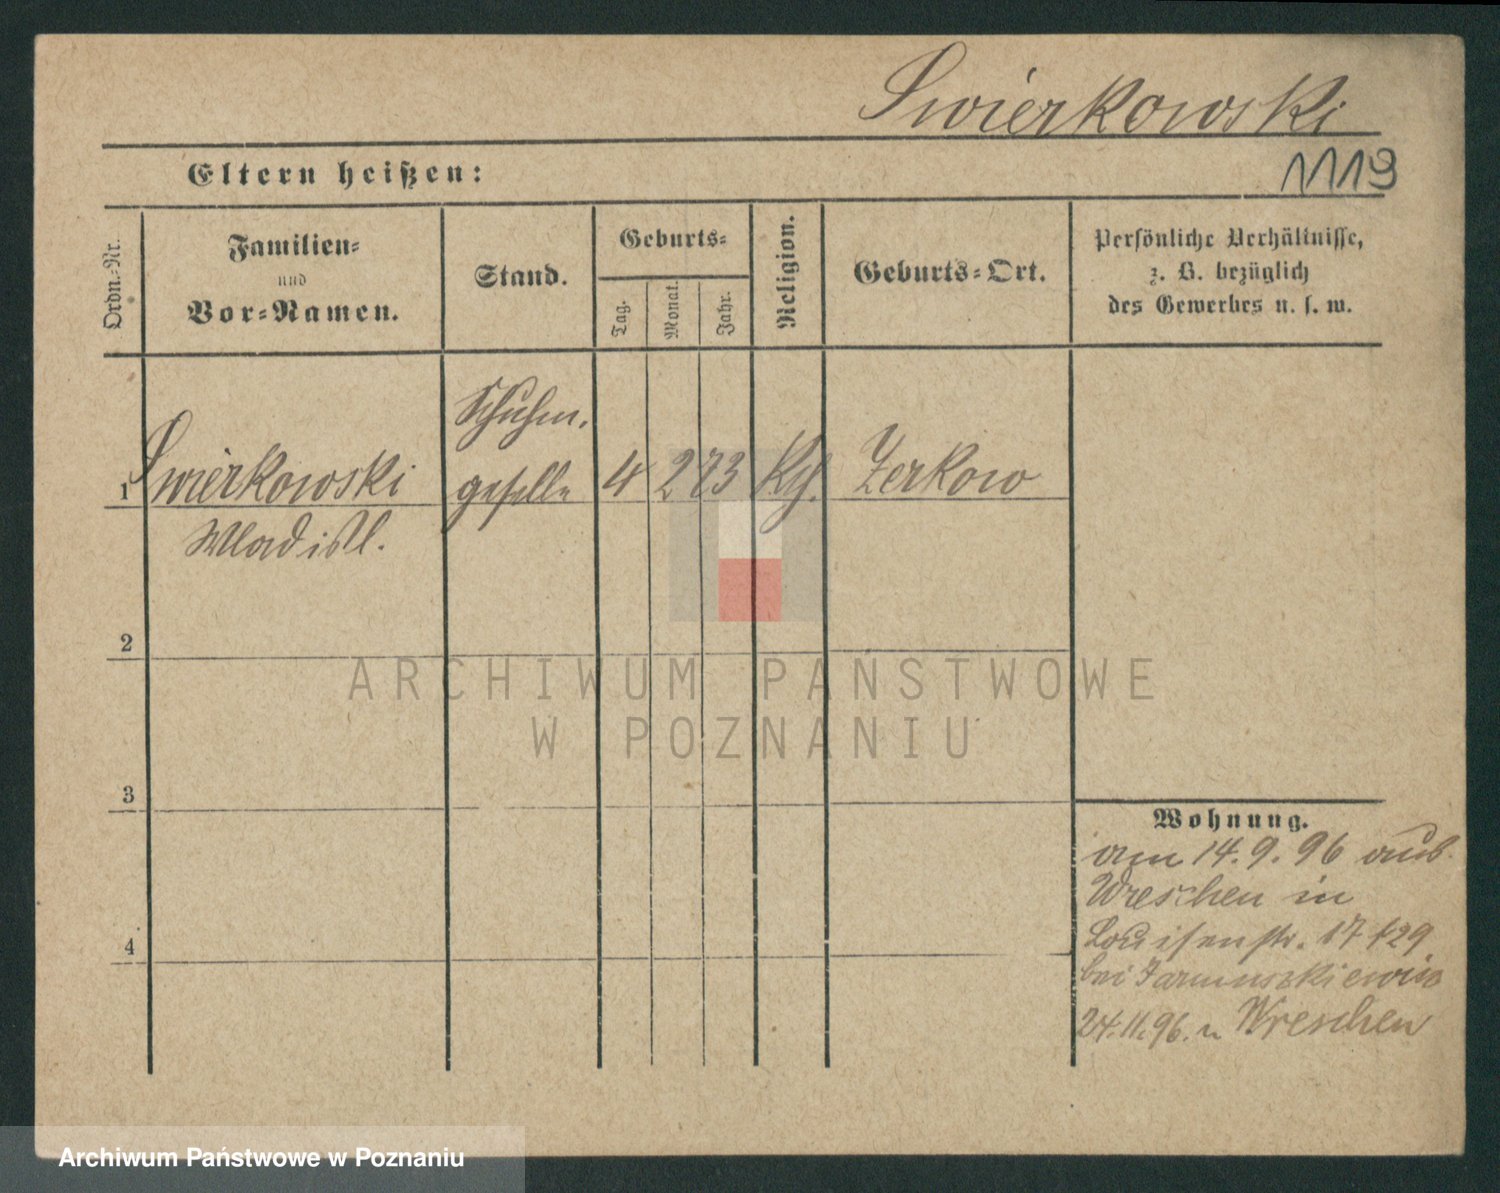 Swierkowski
1119
Eltern heißen:
Ordn.-Nr.
Familien-
und
Vor-Namen.
Stand.
Geburts-
Tag.
Monat.
Jahr.
Religion.
Geburts-Ort.
Persönliche Verhältnisse,
z. B. bezüglich
des Gewerbes u. s. w.
Schuhm.
1 Swierkowski geselle 4 2 73 Kth. Zerkow
Wladisl.
2
3
4
Wohnung.
am 14.9.96 aus
Wreschen in
Louisenstr. 17
bei Jarmuszkiewicz
24.11.96. n Wreschen
ARCHIWUM PAŃSTWOWE
W POZNANIU
Archiwum Państwowe w Poznaniu